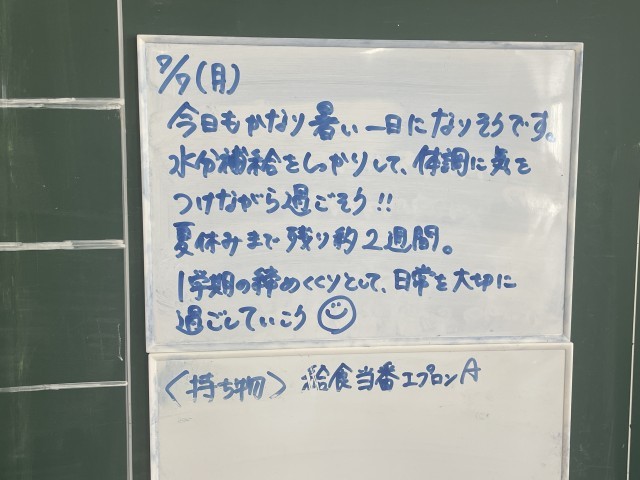 7/7(月)
今日もかなり暑い一日になりそうです。
水分補給をしっかりして、体調に気を
つけながら過ごそう!!
夏休みまで残り約2週間。
1学期の締めくくりとして、日常を大切に
過ごしていこう
〈持ち物〉 給食当番エプロンA